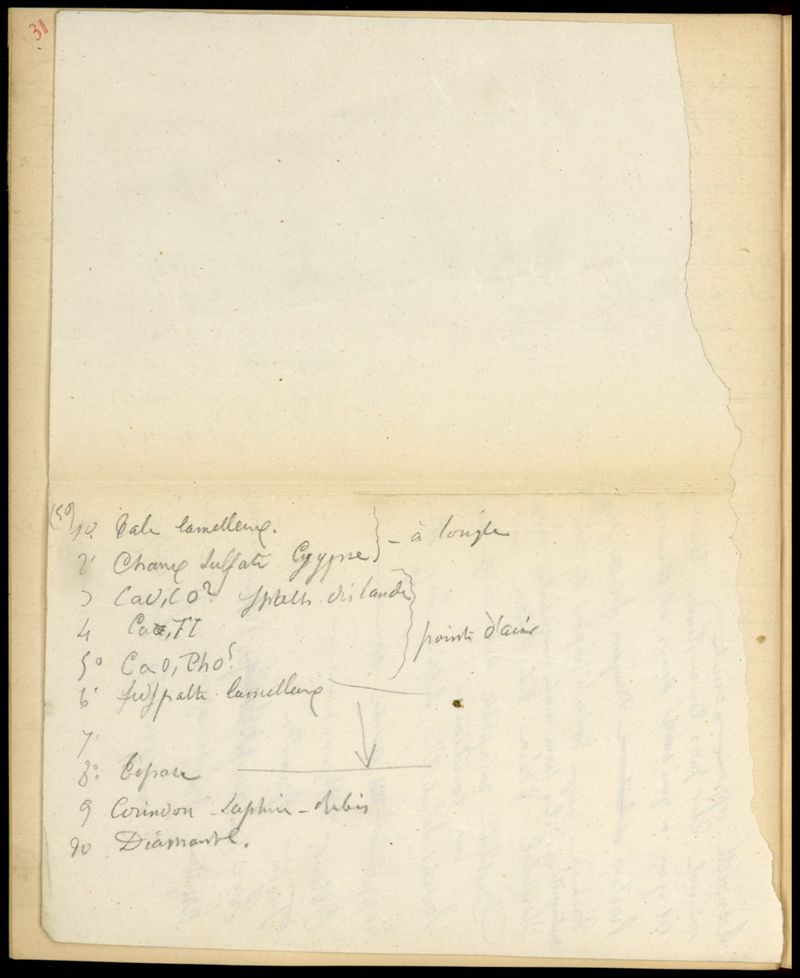 31
1o. Talc lamelleux. } - à l'ongle
2° Chaux sulfatée Gypse
3 CaO, CO² spath d'islande } pointe d'acier
4 Ca, Fl
5° CaO, PhO⁵
6° feldspath lamelleux
7°
8° Topaze
9 Corindon - Saphir - rubis
10 Diamant.